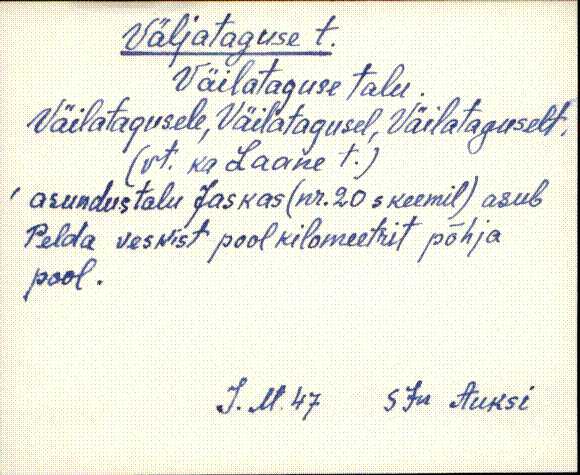 Väljataguse t.
Väilataguse talu.
Väilatagusele, Väilatagusel, Väilataguselt.
(vt. ka Laane t.)
asundustalu Jaskas (nr. 20 skeemil) asub
Pelda veskist pool kilomeetrit põhja
pool.
J. M. 47 SJn Auksi